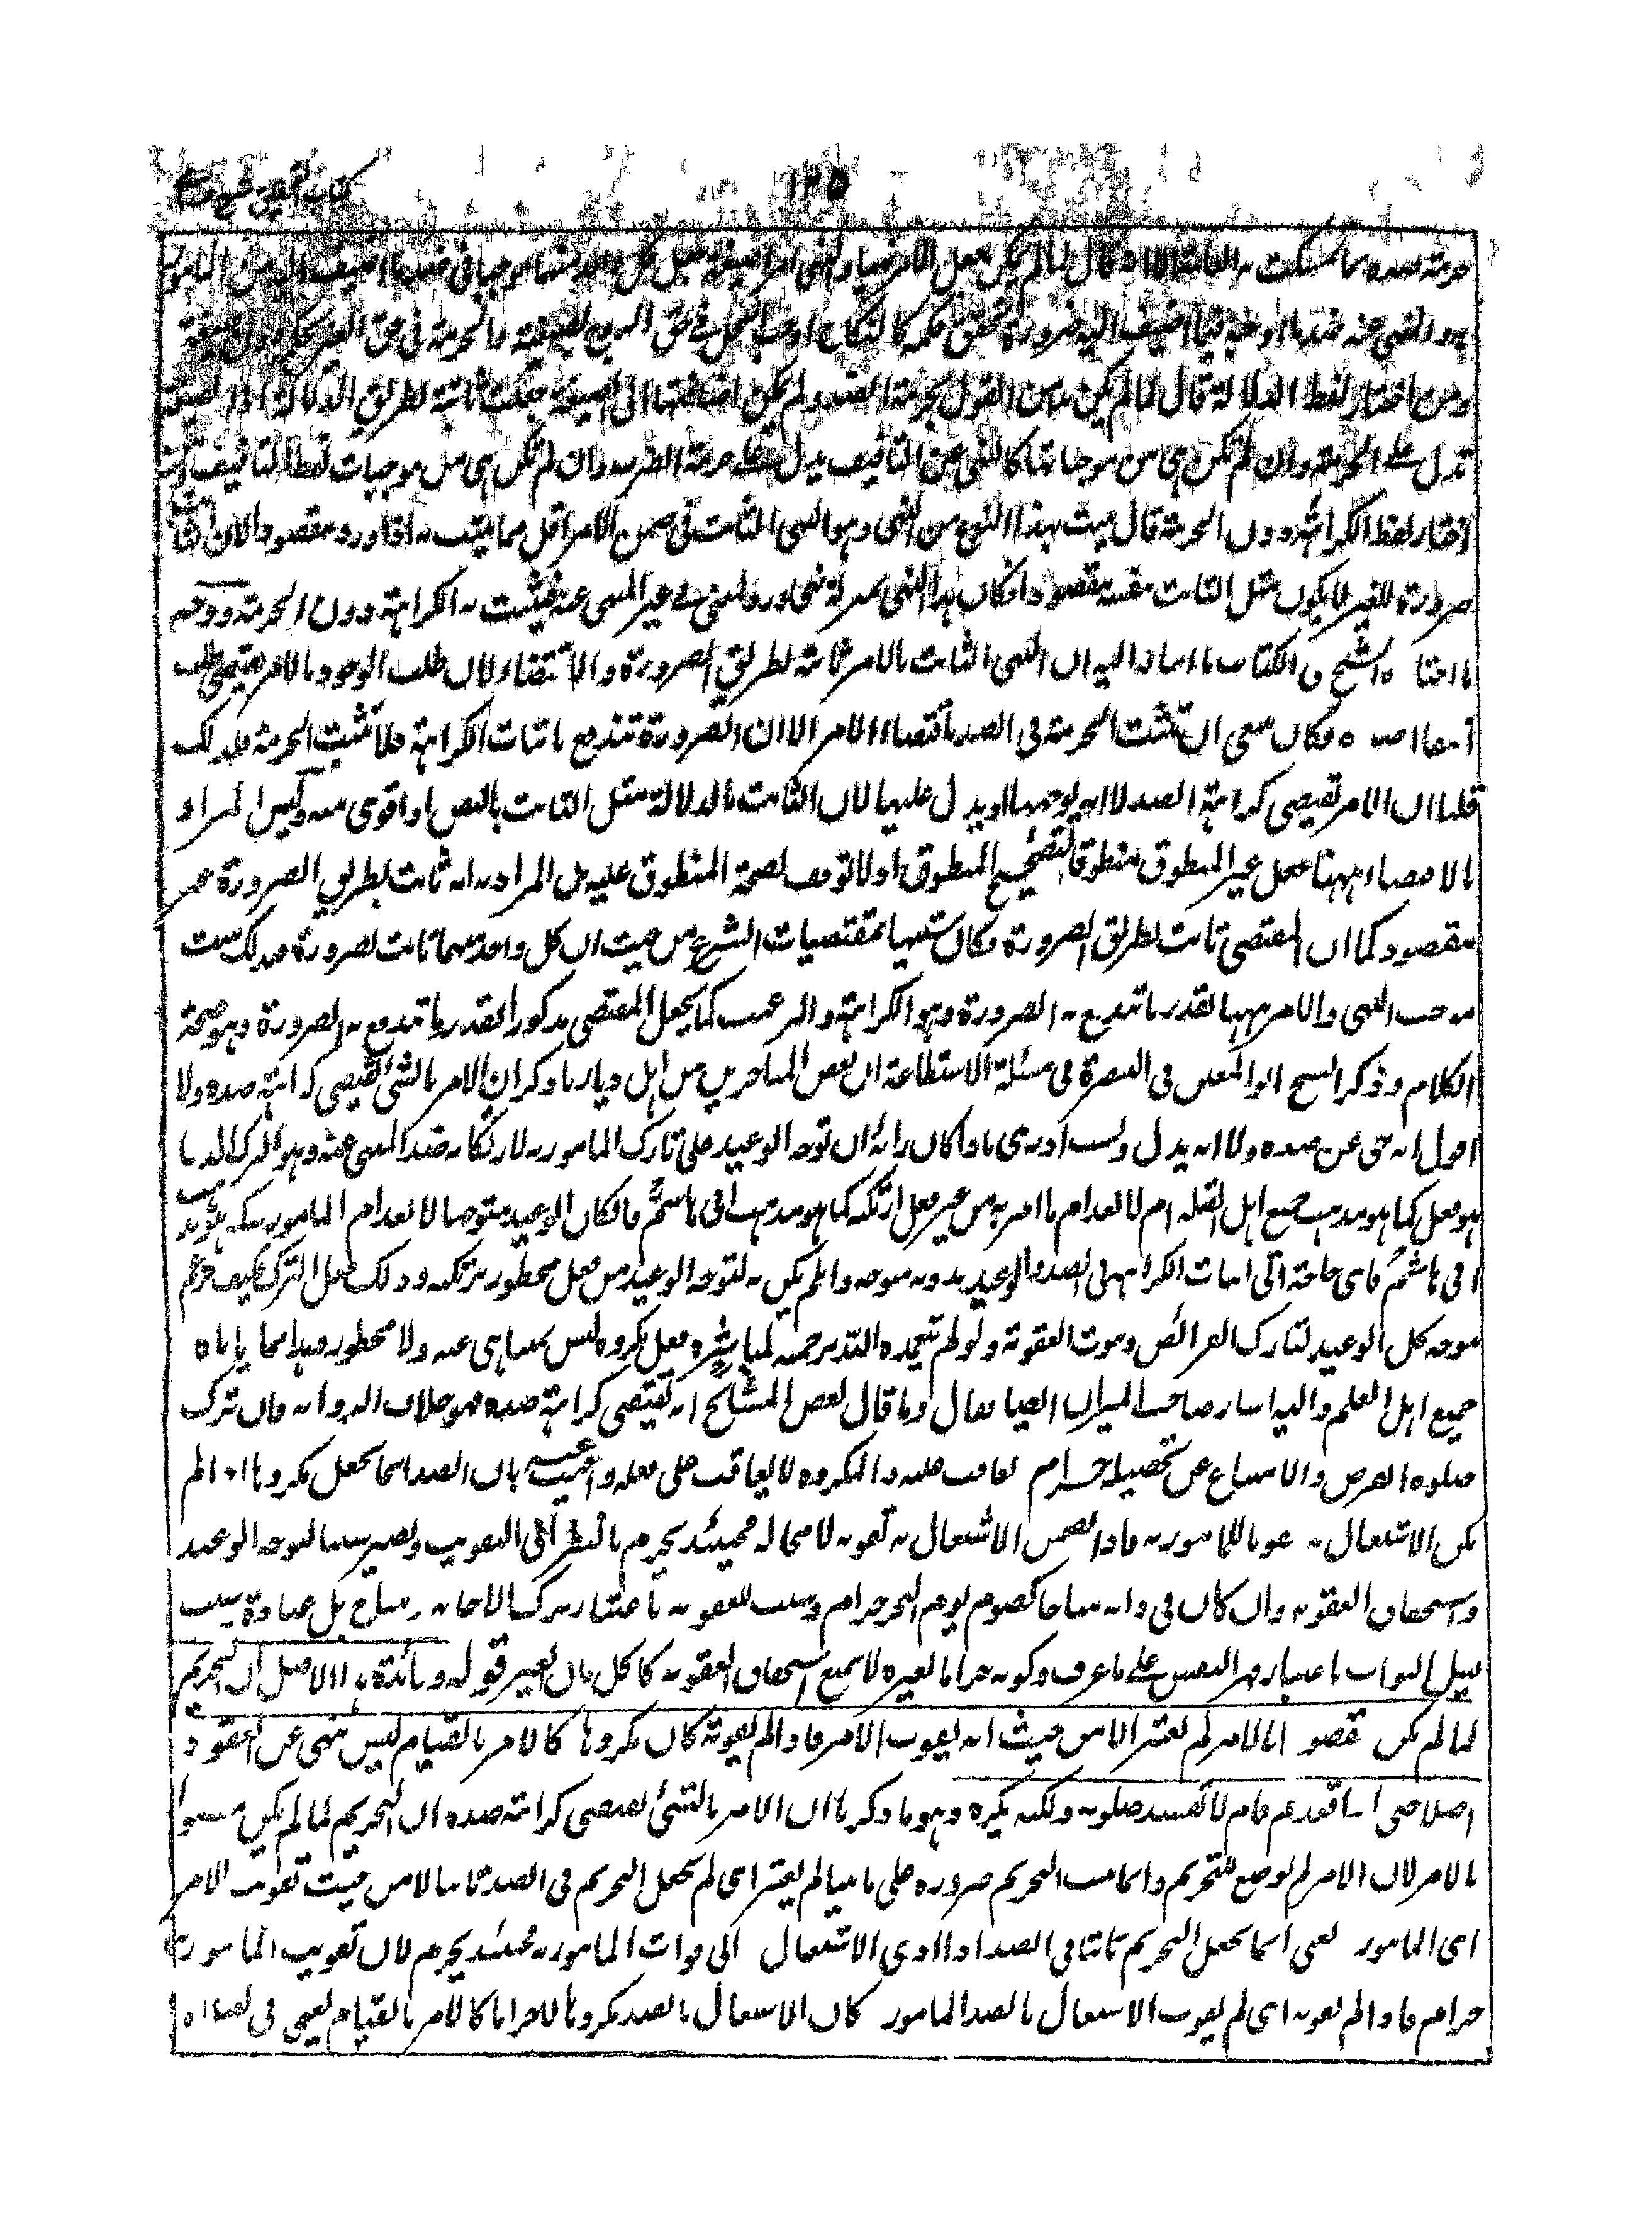 ١٢٥
حرمة ضده بما تمسكت به العامة الا انه قال لما لم يكن
هو والنهي عنه ضد ما اوجبه فيما اضيف اليه ضرورة تحقق حكمه كالنكاح اوجب الحل في حق الزوج بصيغته والحرمة في حق الغير بحكمه دون صيغته
ومن اختار لفظ الدلالة قال لما لم يكن بد من القول بحرمة الضد ولم يمكن اضافتها الى الصيغة جعلت ثابتة بطريق الدلالة اذ الصيغة
تدل على الحرمة وان لم تكن هي من موجباتها كالنهي عن التأفيف يدل على حرمة الضرب وان لم تكن هي من موجبات لفظ التأفيف ومن
اختار لفظ الكراهة دون الحرمة قال يثبت بهذا النوع من النهي وهو النهي الثابت في ضمن الامر اقل مما يثبت به اذا ورد مقصودا لان الثابت
ضرورة للغير لا يكون مثل الثابت بنفسه مقصودا فكان هذا النهي بمنزلة نهي ورد لمعنى في غير المنهي عنه فيثبت به الكراهة دون الحرمة ووجه
ما اختا ه الشيخ في الكتاب ما اشار اليه ان النهي الثابت بالامر ثابت بطريق الضرورة والاقتضاء لان طلب الوجود بالامر يقتضي طلب
انتفاء ضده فكان ينبغي ان تثبت الحرمة في الضد باقتضاء الامر الا ان الضرورة تندفع باثبات الكراهة فلا تثبت الحرمة فلذلك
قلنا ان الامر يقتضي كراهة الضد لا انه يوجبها او يدل عليها لان الثابت بالدلالة مثل الثابت بالنص او اقوى منه وليس المراد
بالاقتضاء ههنا جعل غير المنطوق منطوقا لتصحيح المنطوق اذ لا توقف لصحة المنطوق عليه بل المراد به انه ثابت بطريق الضرورة غير
مقصود كما ان المقتضى ثابت بطريق الضرورة فكان شبيها بمقتضيات الشرع من حيث ان كل واحد منهما ثابت لضرورة فلذلك يثبت
موجب النهي والامر ههنا بقدر ما تندفع به الضرورة وهو الكراهة والترغيب كما يجعل المقتضى مذكورا بقدر ما تندفع به الضرورة وهو صحة
الكلام وذكر الشيخ ابو المعين في التبصرة في مسئلة الاستطاعة ان بعض المتاخرين من اهل ديارنا ذكر ان الامر بالشئ يقتضي كراهة ضده ولا
اقول انه نهي عن ضده ولا انه يدل ولست ادري ماذا كان رأيه ان توجه الوعيد على تارك المامور به لارتكابه ضد المنهي عنه وهو الترك الذي
هو فعل كما هو مذهب جميع اهل القبلة ام لانعدام ما امر به من غير فعل ارتكبه كما هو مذهب ابي هاشم فان كان الوعيد متوجها لانعدام المامور به كما هو مذهب
ابي هاشم فاي حاجة الى اثبات الكراهة في الضد والوعيد بدونه متوجه وان لم يكن بد لتوجه الوعيد من فعل محظور يرتكبه وذلك فعل الترك فكيف يزعم
توجه كل الوعيد لتارك الفرائض وثبوت العقوبة ولو لم يتغمده الله برحمته لمباشرة فعل مكروه ليس بمنهي عنه ولا محظور هذا مما ياباه
جميع اهل العلم واليه اشار صاحب الميزان ايضا فقال وما قال بعض المشايخ انه يقتضي كراهة ضده فهو خلاف الرواية فان ترك
صلوة الفرض والامتناع عن تحصيله حرام يعاقب عليه والمكروه لا يعاقب على فعله واجيب عنه بان الضد انما يجعل مكروها اذا لم
يكن الاشتغال به مفوتا للمامور به فاذا تضمن الاشتغال به تفويته لا محالة فحينئذ يحرم بالنظر الى التفويت ويصير سببا لتوجه الوعيد
واستحقاق العقوبة وان كان في ذاته مباحا كصوم يوم النحر حرام وسبب للعقوبة باعتبار ترك الاجابة مباح بل عبادة سبب
لنيل الثواب باعتبار قهر النفس على ما عرف وكونه حراما لغيره لا يمنع استحقاق العقوبة كاكل مال الغير قوله وفائدة هذا الاصل ان التحريم
لما لم يكن مقصودا بالامر لم يعتبر الا من حيث انه يفوت الامر فاذا لم يفوته كان مكروها كالامر بالقيام ليس بنهي عن القعود
اصلا حتى اذا قعد ثم قام لا تفسد صلوته ولكنه يكره وهو ما ذكرنا ان الامر بالشئ يقتضي كراهة ضده ان التحريم لما لم يكن مقصودا
بالامر لان الامر لم يوضع للتحريم وانما ثبت التحريم ضرورة على ما بينا لم يعتبر اي لم يجعل التحريم في الضد ثابتا الا من حيث تفويت الامر
اي المامور يعني انما يجعل التحريم ثابتا في الضد اذا ادى الاشتغال الى فوات المامور به فحينئذ يحرم لان تفويت المامور به
حرام فاذا لم يفوته اي لم يفوت الاشتغال بالضد المامور كان الاشتغال بالضد مكروها لا حراما كالامر بالقيام يعني في